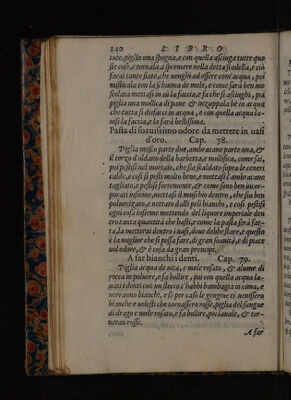 140 LIBRO
tute, piglia una spugna, e con quella asciuga tutte que
ste cose, e tornala a spremere nella detta scodella, e ciò
farai tante fiate, che uenghi ad essere com'acqua, poi
mescola con la schiuma de mele, e come sarà ben me
scolata mettasi in sù la faccia, e fa che si asciughi, poi
piglia una mollica di pane & inzuppala bè in acqua
che tutta si disfacci in acqua, e con quella acqua la-
uisi la faccia, e la farà bellissima.
Pasta di soauissimo odore da mettere in uasi
d'oro. Cap. 78.
Piglia musco parte due, ambracane parte una, &
il terzo d'oldano della barbetta, e mollifica, come sai,
poi pestisi nel mortaio, che sia scaldato sopra le ceneri
calde, e così si pesti molto bene, e mettasi l'ambracane
tagliato, e pestisi fortemente, & come sono ben incor-
porati insieme, mettasi il muschio dentro, che sia ben
poluerizato, e mettasi alli peli bianchi, e così pestisi
ogni cosa insieme mettendo del liquore imperiale den
tro tanta quantità che basti, e come la pasta sarà fat-
ta, la metterai dentro i uasi, doue debbe stare, e questo
è la miglior che si possa fare, di gran soauità, e di piace
uol odore, & è cosa da gran prencipi.
A far bianchi i denti. Cap. 79.
Piglia acqua de uita, e mele rosato, & alume di
rocca in poluere, e fa bollire, poi con quella acqua la-
uati i denti con un stecco c'habbi bambagia in cima, e
uerranno bianchi, e se per caso le gengiue ti uenissero
bianche e uolesti che tornassero rosse, piglia del sangue
di drago e mele rosato, e fa bollire, poi lauale, & tor-
neran rosse.
A far